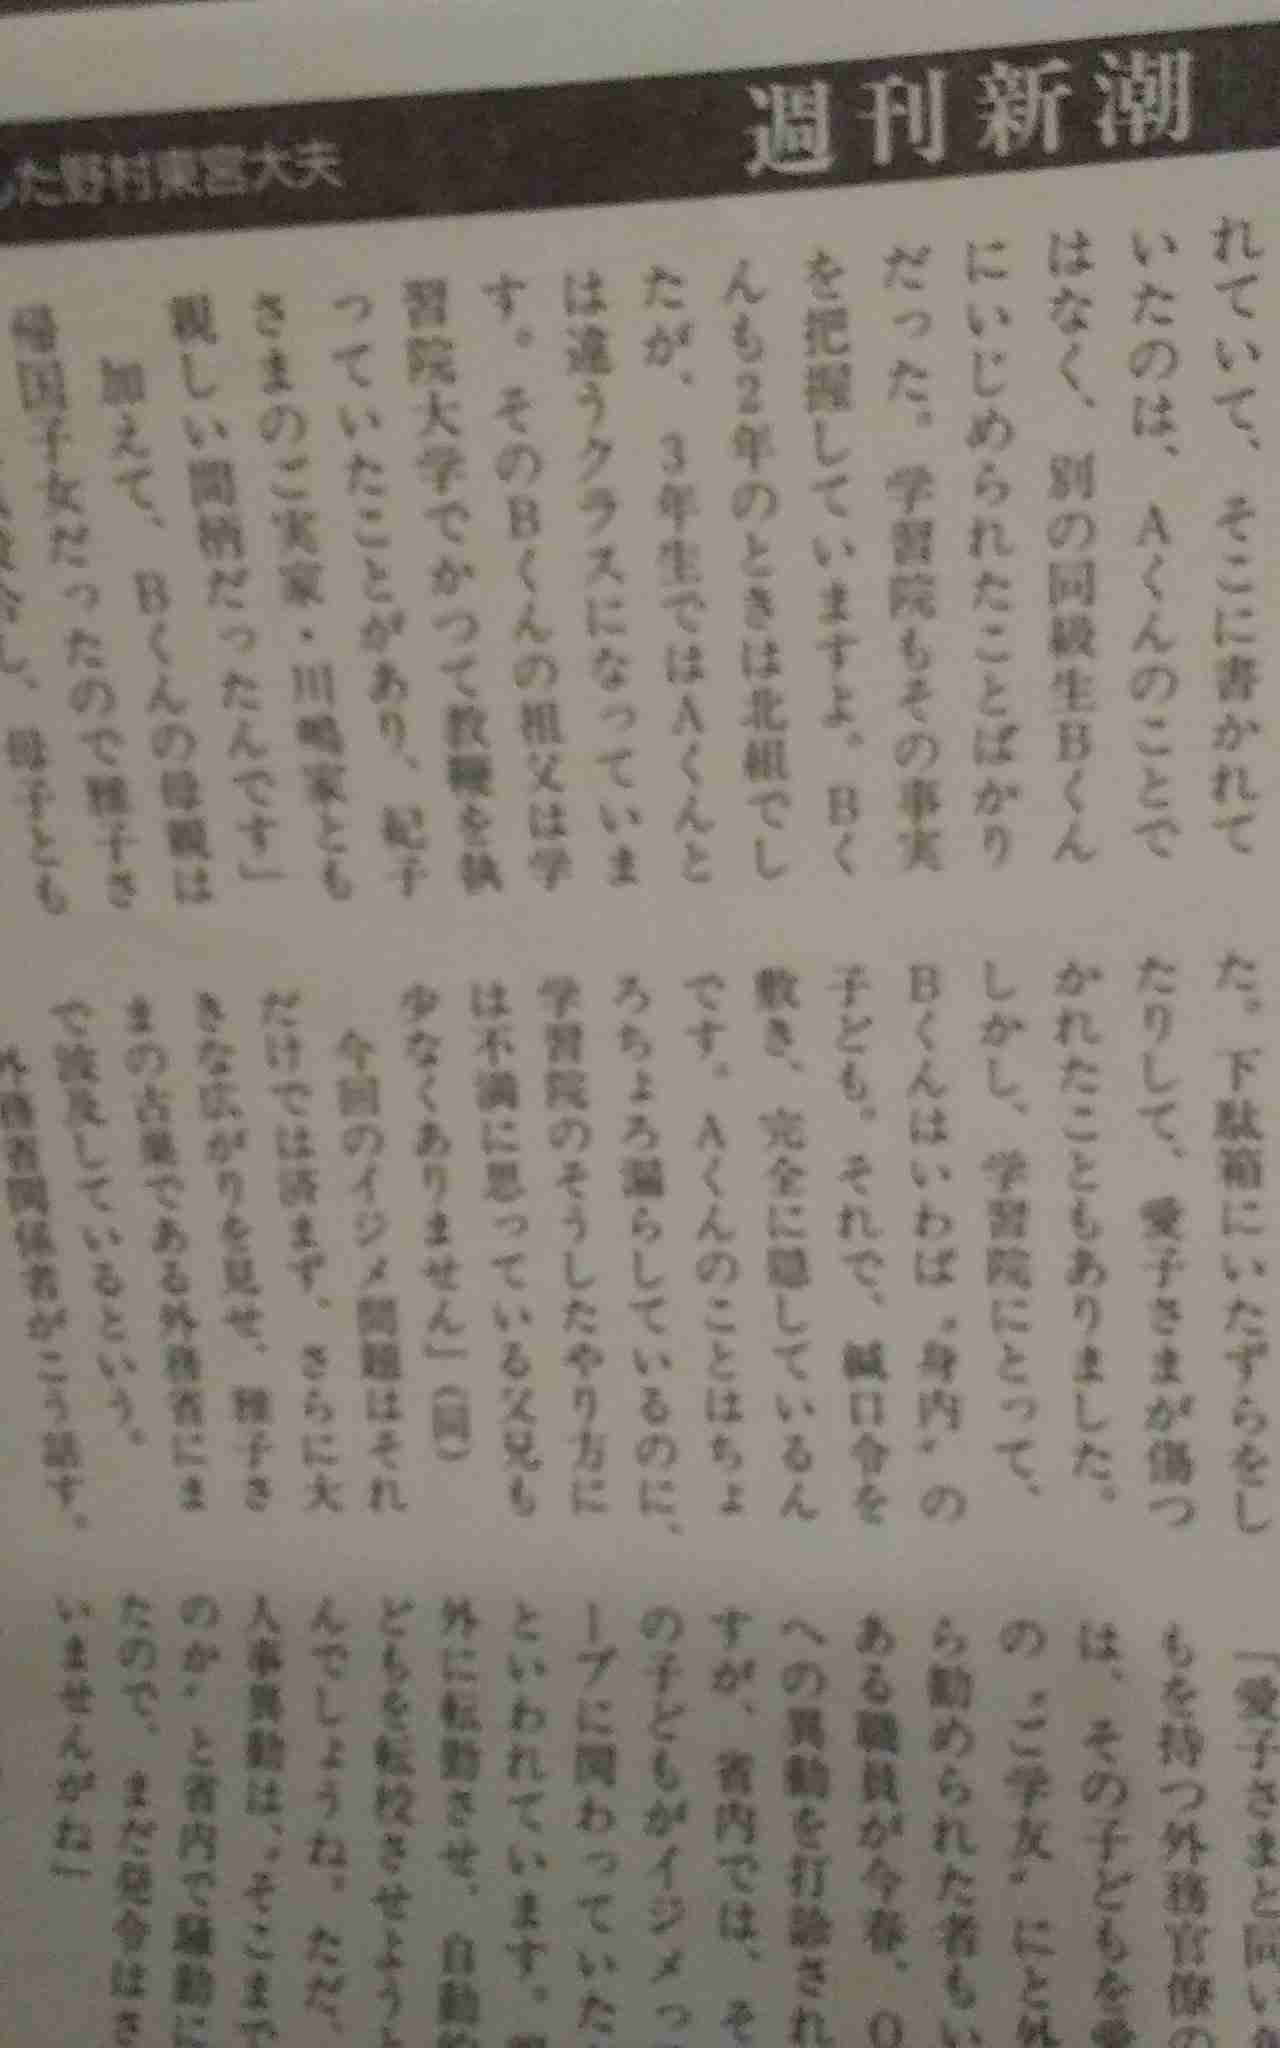 週刊新潮
した野村東宮大夫
れていて、そこに書かれて
いたのは、Aくんのことで
はなく、別の同級生Bくん
にいじめられたことばかり
だった。学習院もその事実
を把握していますよ。Bく
んも2年のときは北組でし
たが、3年生ではAくんと
は違うクラスになっていま
す。そのBくんの祖父は学
習院大学でかつて教鞭を執
っていたことがあり、紀子
さまのご実家・川嶋家とも
親しい間柄だったんです」
加えて、Bくんの母親は
帰国子女だったので雅子さ
し、母子とも
た。下駄箱にいたずらをし
たりして、愛子さまが傷つ
かれたこともありました。
しかし、学習院にとって、
Bくんはいわば〝身内〟の
子ども。それで、緘口令を
敷き、完全に隠しているん
です。Aくんのことはちょ
ろちょろ漏らしているのに、
学習院のそうしたやり方に
は不満に思っている父兄も
少なくありません」(同)
今回のイジメ問題はそれ
だけでは済まず、さらに大
きな広がりを見せ、雅子さ
まの古巣である外務省にま
で波及しているという。
外務省関係者がこう話す。
「愛子さまと同い年
もを持つ外務官僚の
は、その子どもを愛
の〝ご学友〟にと外
ら勧められた者もい
ある職員が今春、O
への異動を打診され
すが、省内では、そ
の子どもがイジメっ
ープに関わっていた
といわれています。
外に転勤させ、自動的
どもを転校させようと
んでしょうね。ただ、
人事異動は、〝そこまで
のか〟と省内で騒動に
たので、まだ発令はさ
いませんがね」